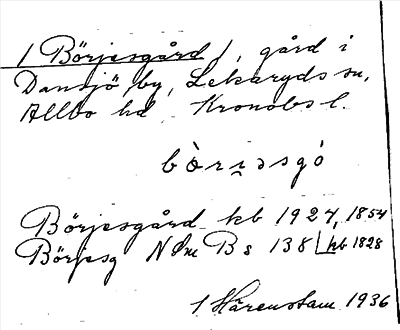 / Börjesgård /, gård i
Dansjö by, Lekaryds sn,
Allbo hd Kronobs l.
bòrisgó
Börjesgård kb 1927, 1854
Börjesg NOm B s 138 hb 1828
/ Härenstam 1936